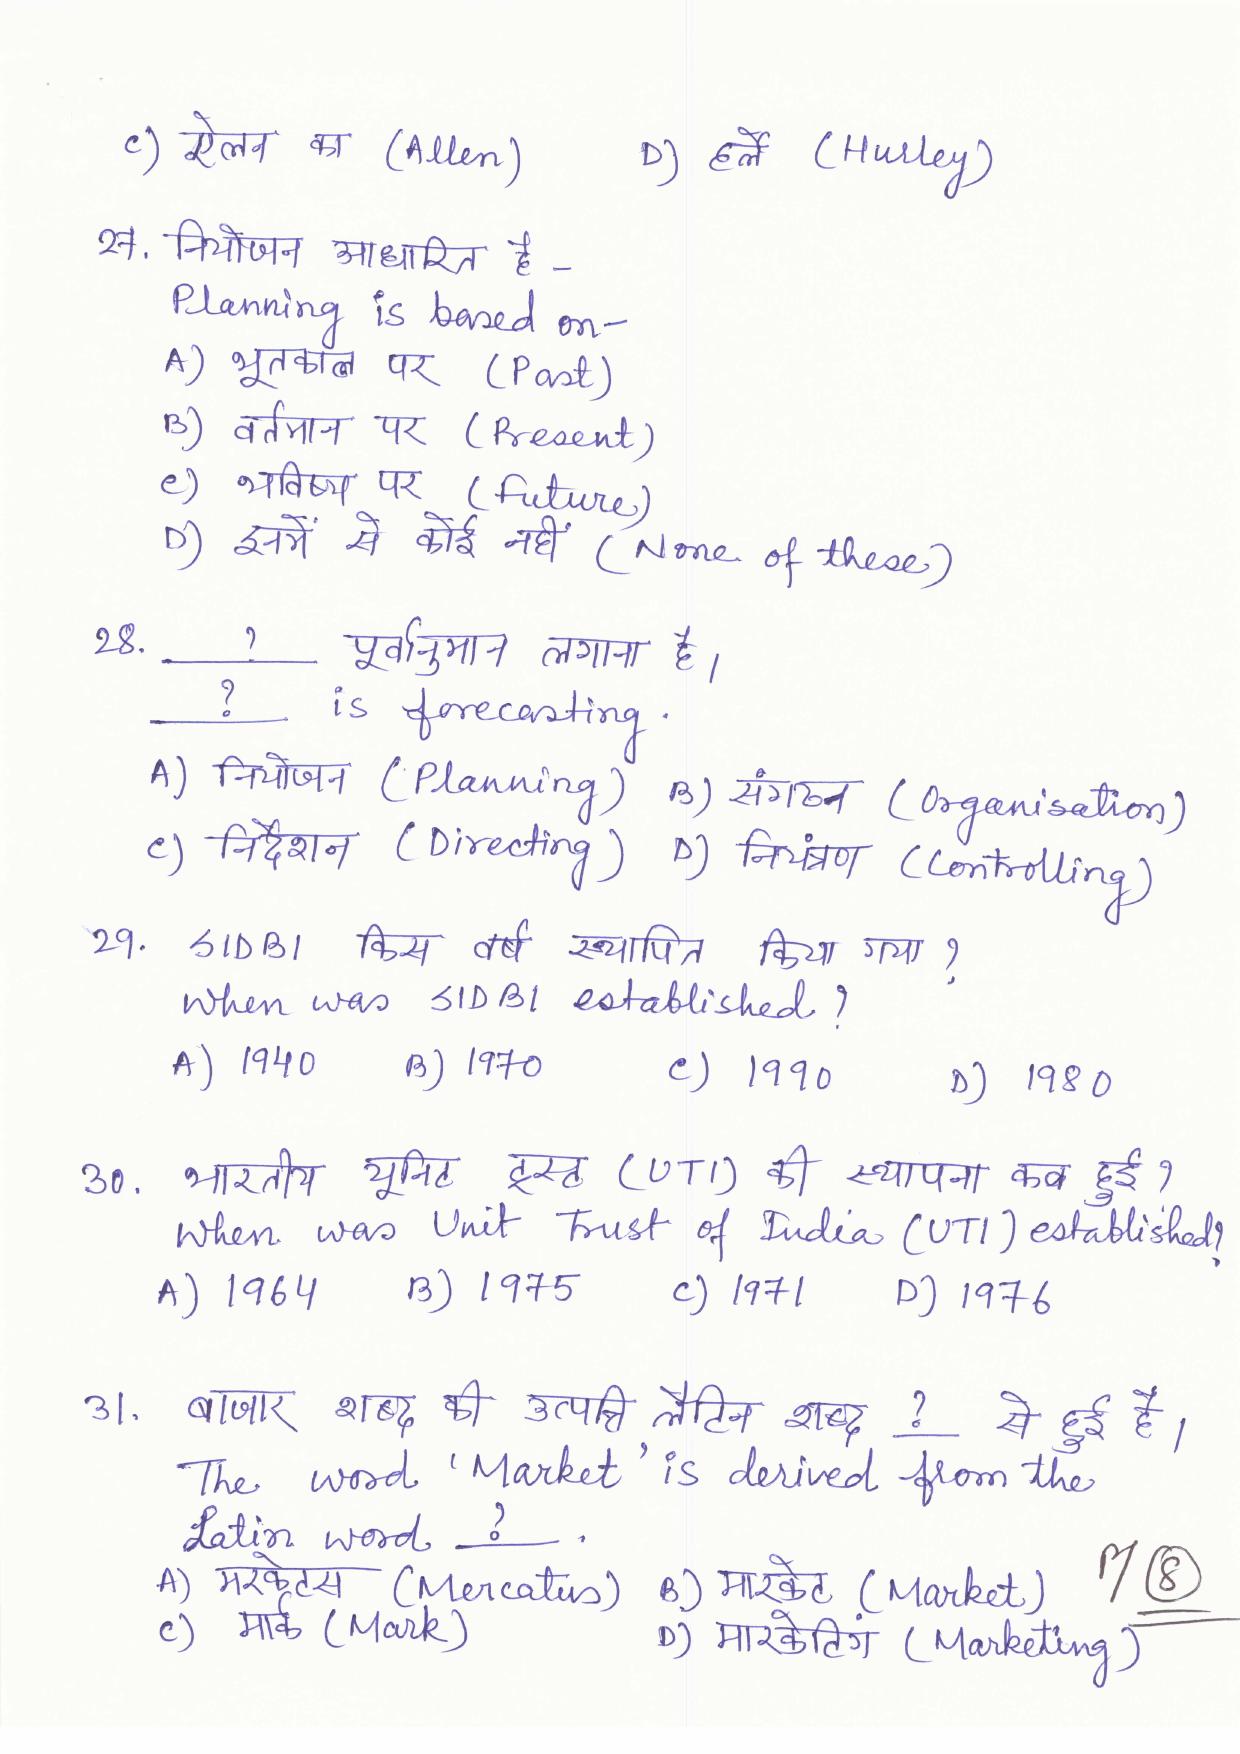 C) ऐलन का (Allen) D) हर्ले (Hurley)
27. नियोजन आधारित है -
Planning is based on -
A) भूतकाल पर (Past)
B) वर्तमान पर (Present)
C) भविष्य पर (Future)
D) इनमें से कोई नहीं (None of these)
28. ? पूर्वानुमान लगाना है।
? is forecasting.
A) नियोजन (Planning) B) संगठन (Organisation)
C) निर्देशन (Directing) D) नियंत्रण (Controlling)
29. SIDBI किस वर्ष स्थापित किया गया ?
When was SIDBI established ?
A) 1940 B) 1970 C) 1990 D) 1980
30. भारतीय यूनिट ट्रस्ट (UTI) की स्थापना कब हुई ?
When was Unit Trust of India (UTI) established?
A) 1964 B) 1975 C) 1971 D) 1976
31. बाजार शब्द की उत्पत्ति लैटिन शब्द ? से हुई है।
The word 'Market' is derived from the
Latin word ? .
A) मरकेटस (Mercatus) B) मारकेट (Market)
C) मार्क (Mark) D) मारकेटिंग (Marketing)
8